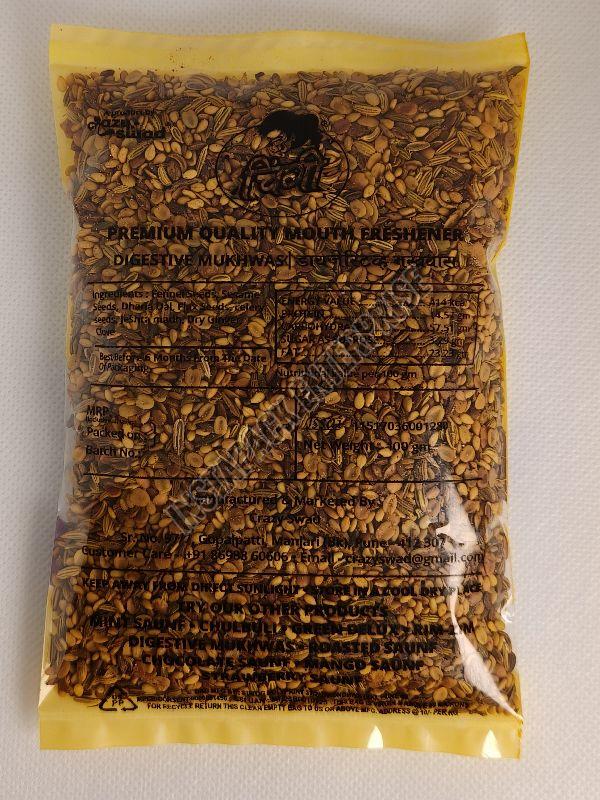 A product by
Crazy Swad
PREMIUM QUALITY MOUTH FRESHENER
DIGESTIVE MUKHWAS | डायजेस्टिव्ह मुखवास
Ingredients : Fennel Seeds, Sesame
Seeds, Dhana Dal, Flax seeds, celery
seeds, Jeshta madh, Dry Ginger
Clove
ENERGY VALUE 414 kcal
PROTEIN 14.51 gm
CARBOHYDRATE 57.51 gm
SUGAR AS
FAT 23.23 gm
Best Before 6 Months From The Date
Of Packaging
Nutritional value per 100 gm
MRP
Packed on :
Batch No. :
Net Weight - 100 gm
INSTAPACK ENTERPRISE
Manufactured & Marketed By
Crazy Swad
Gopalpatti, Manjari (Bk), Pune - 412 307
Customer Care - +91 86988 60606 • Email - crazyswad@gmail.com
KEEP AWAY FROM DIRECT SUNLIGHT • STORE IN A COOL DRY PLACE
TRY OUR OTHER PRODUCTS
MINT SAUNF • CHULBULI • GREEN DELUX • RIM-ZIM
DIGESTIVE MUKHWAS • ROASTED SAUNF
CHOCOLATE SAUNF • MANGO SAUNF
STRAWBERRY SAUNF
PP
FOR RECYCLE RETURN THIS CLEAN EMPTY BAG TO US ON ABOVE MFG. ADDRESS @ 10/- PER KG